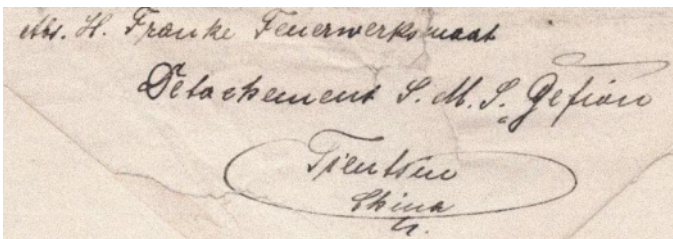 Abs. H. Franke Feuerwerksmaat
Detachement S. M. S. „Gefion
Tientsin
China